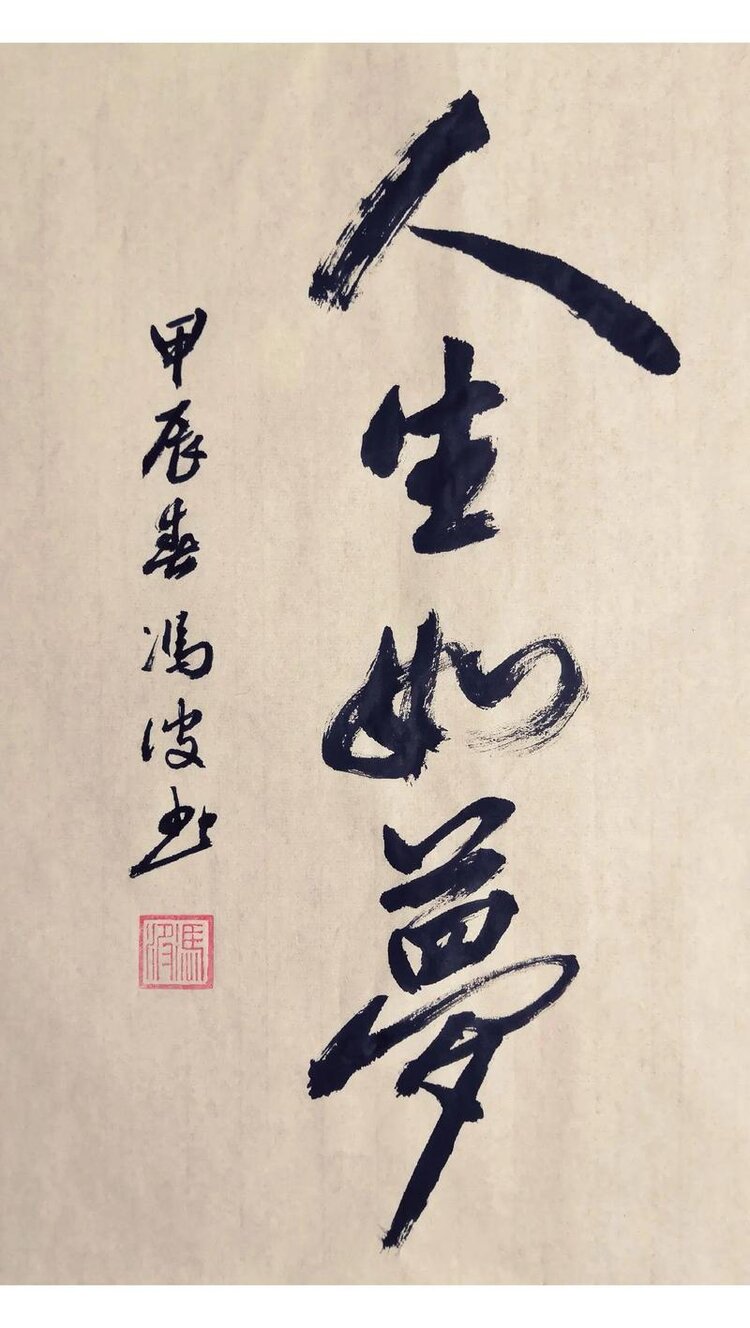 人生如夢
甲辰春馮波書
馮波